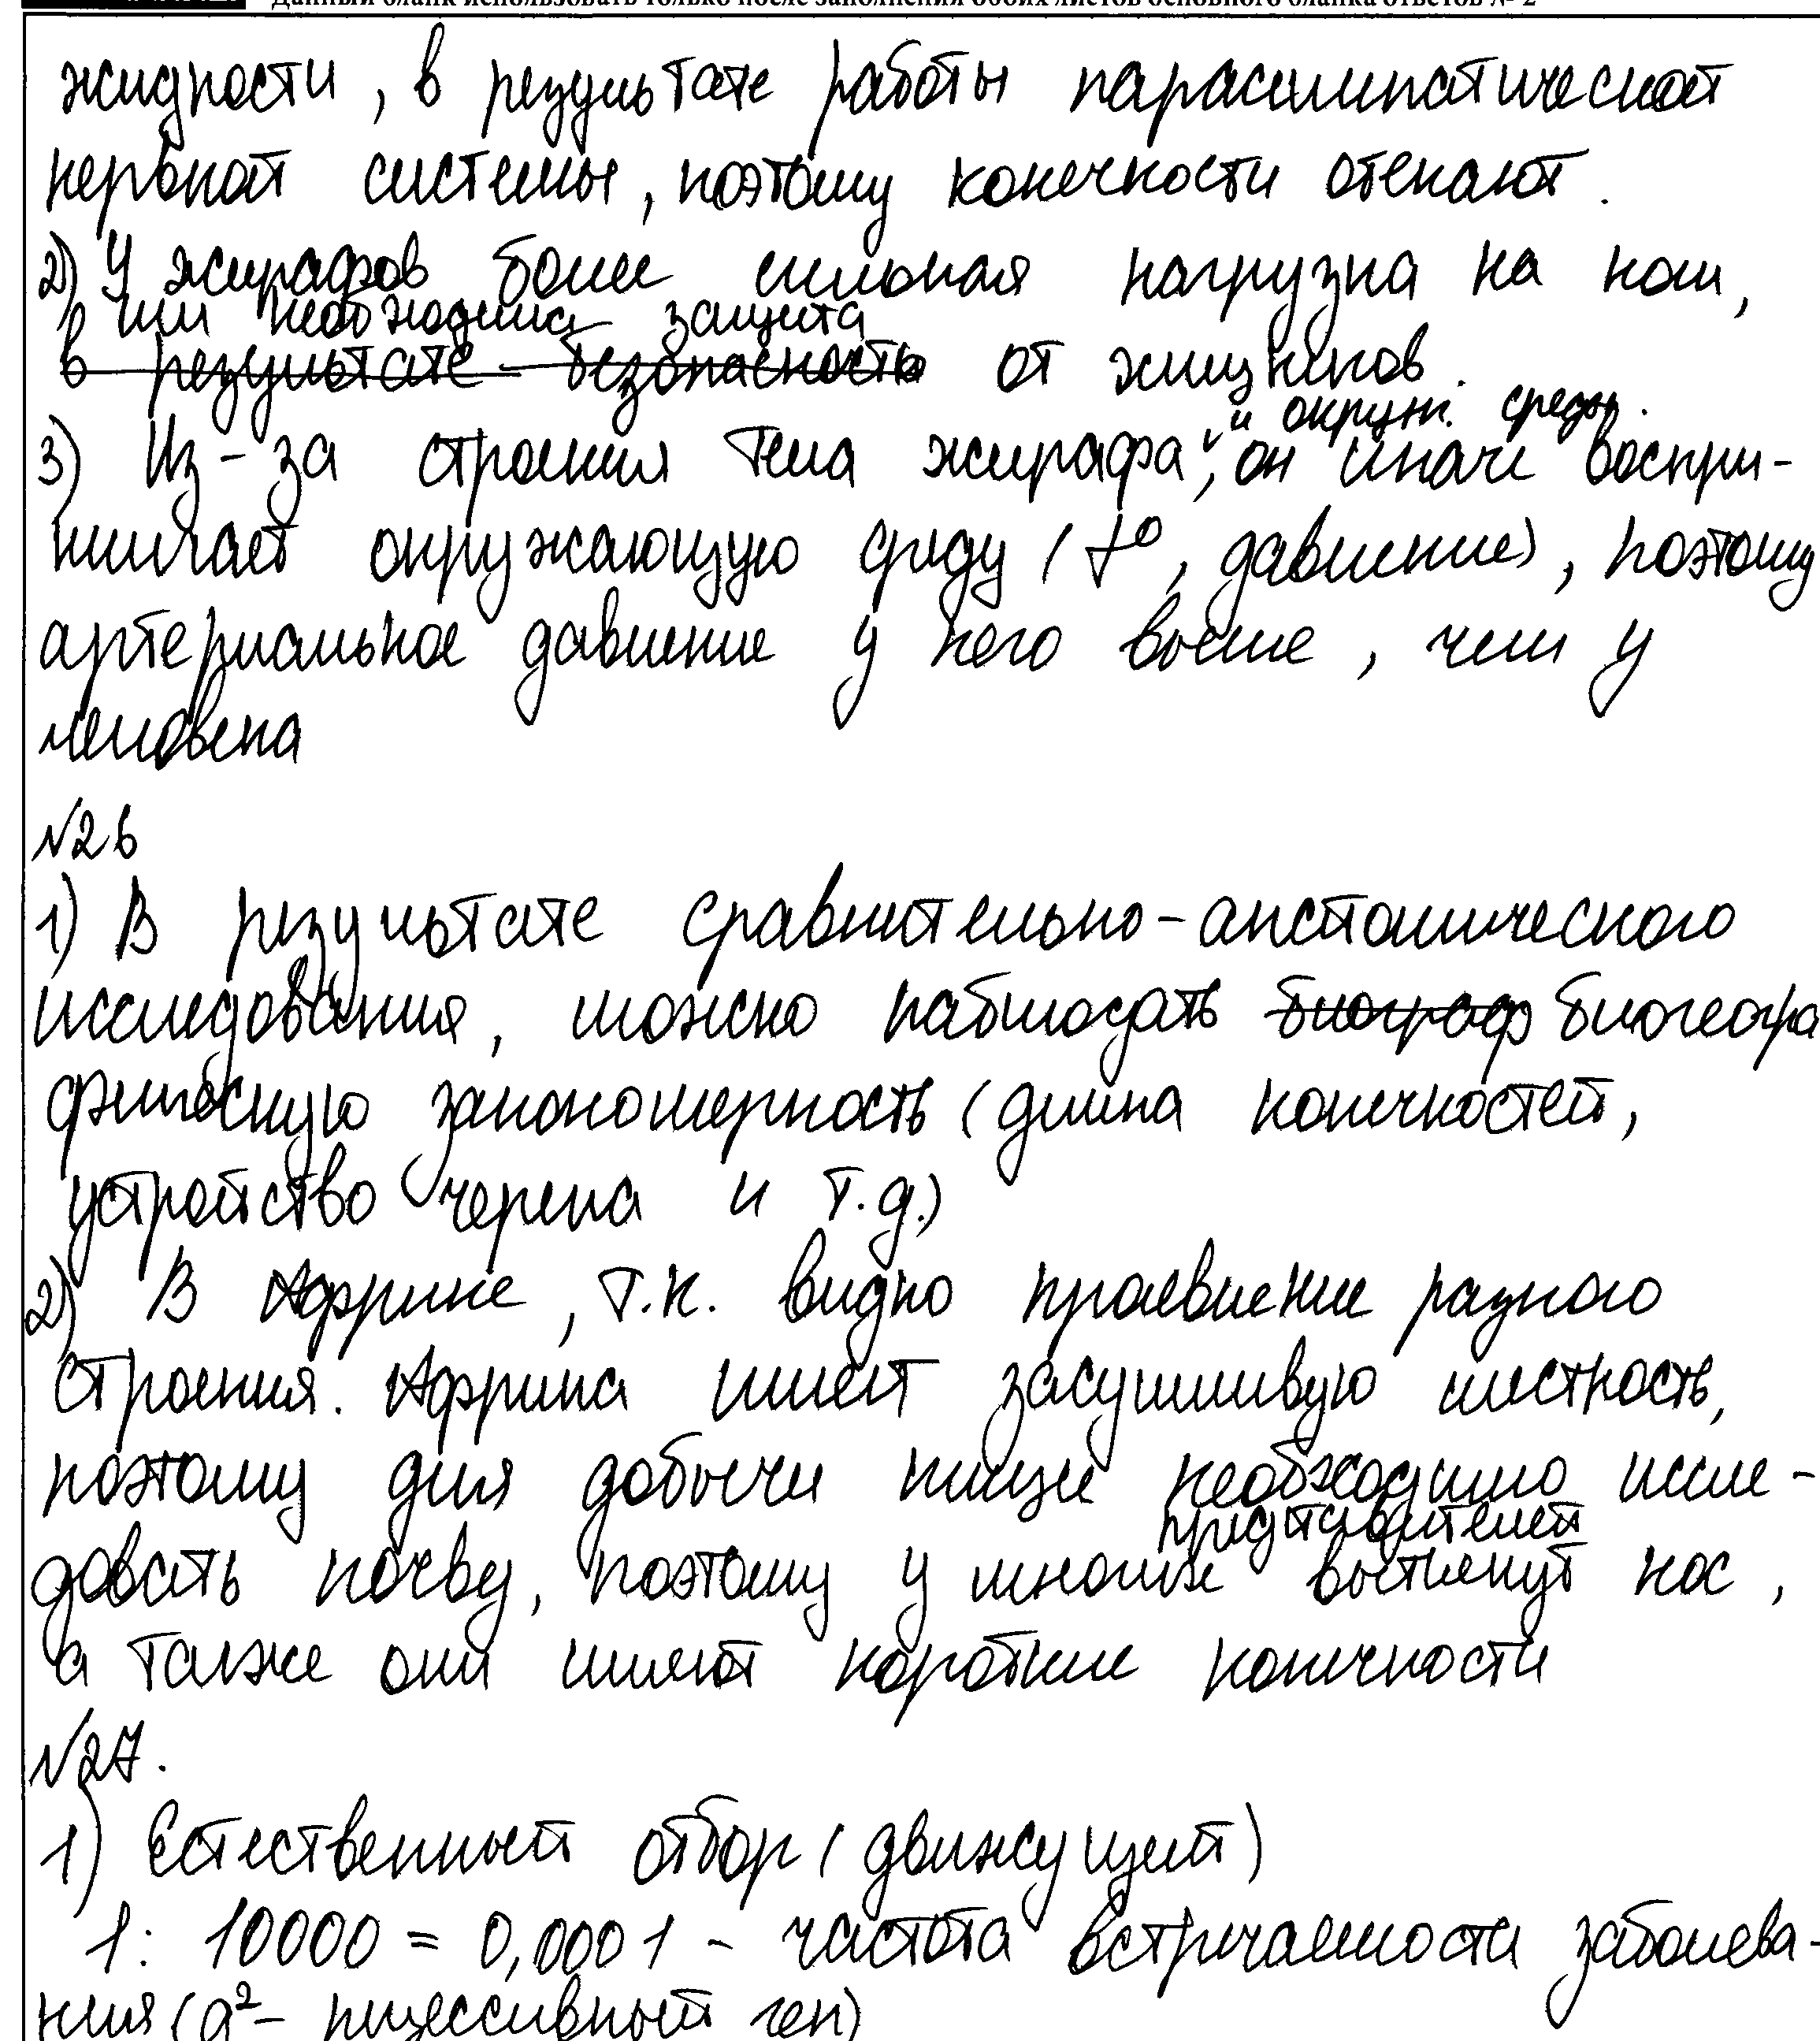 Данный бланк использовать только после заполнения обоих листов основного бланка ответов № 2
жидкости, в результате работы парасимпатической
нервной системы, поэтому конечности отекают.
2) У жирафов более сильная нагрузка на ноги,
им необходима защита
в результате безопасность от хищников.
и окруж. среды.
3) Из-за строения тела жирафа, он иначе воспри-
нимает окружающую среду (t°, давление), поэтому
артериальное давление у него выше, чем у
человека
№26
1) В результате сравнительно-анатомического
исследования, можно наблюдать биограф биогеогра
фическую закономерность (длина конечностей,
устройство черепа и т.д.)
2) В Африке, т.к. видно проявление разного
строения. Африка имеет засушливую местность,
поэтому для добычи пищи необходимо иссле-
представителей
довать почву, поэтому у многих вытянут нос,
а также они имеют короткие конечности
№27.
1) Естественный отбор (движущий)
1: 10000 = 0,0001 - частота встречаемости заболева-
ния (q²- рецессивный ген)